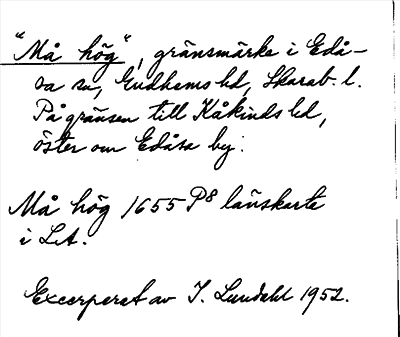 "Må hög", gränsmärke i Edå-
sa sn, Gudhems hd, Skarab. l.
På gränsen till Kåkinds hd,
öster om Edåsa by.
Må hög 1655 P8 länskarta
i LA.
Excerperat av I. Lundahl 1952.